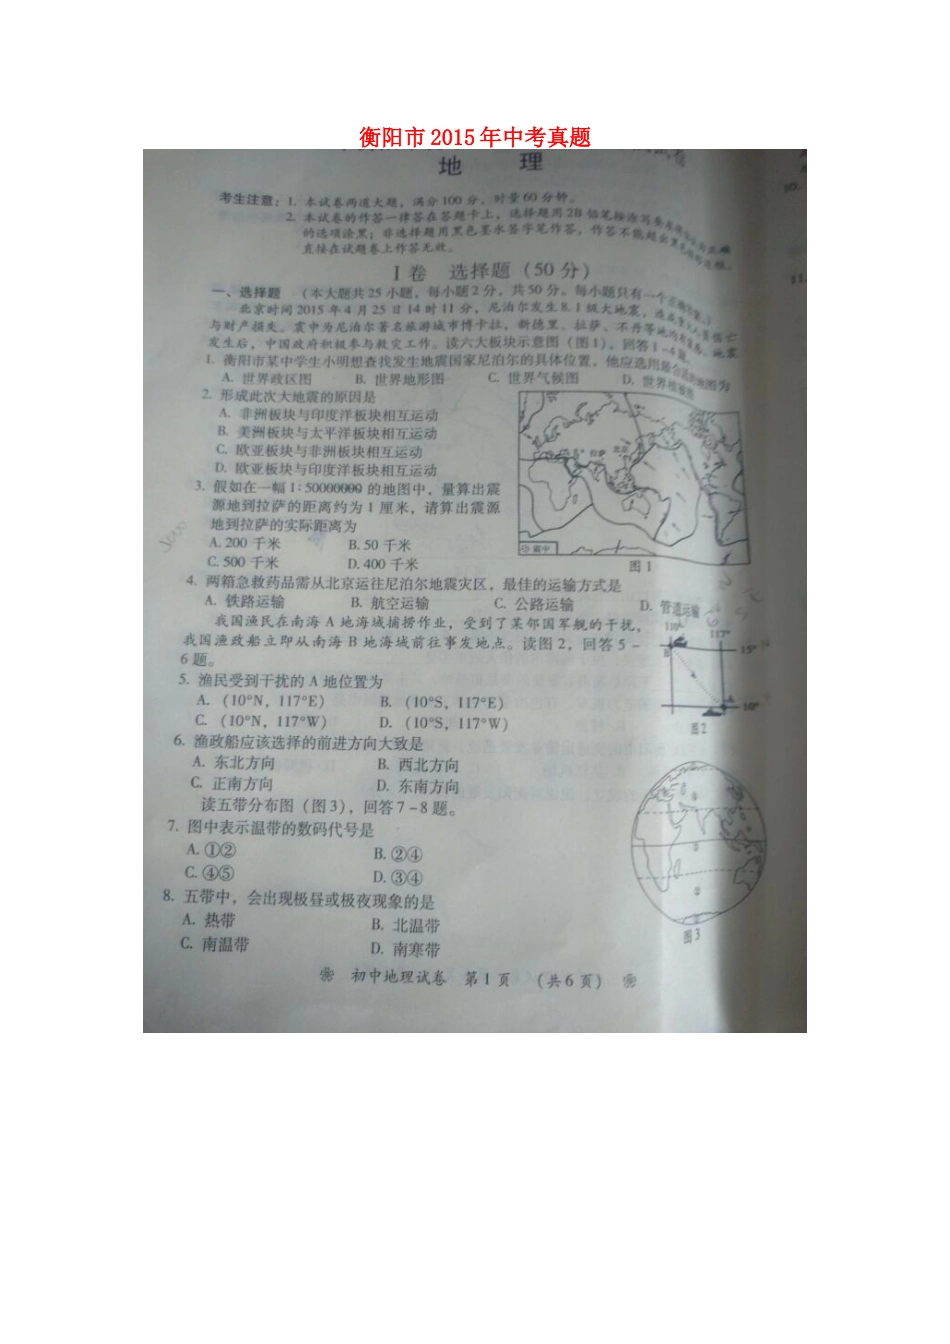 衡阳市 2015 年中考真题
地 理
考生注意：1. 本试卷两道大题，满分100分，时量60分钟。
2. 本试卷的作答一律答在答题卡上，选择题用2B铅笔按涂写
的选项涂黑；非选择题用黑色墨水签字笔作答，作答不能超出
直接在试题卷上作答无效。
I 卷 选择题（50 分）
一、选择题 （本大题共25小题，每小题2分，共50分。每小题只有一个
北京时间2015年4月25日14时11分，尼泊尔发生8.1级大地震，
与财产损失。震中为尼泊尔著名旅游城市博卡拉，新德里、拉萨、不丹等地均有 地震
发生后，中国政府积极参与救灾工作。读六大板块示意图（图1），回答1-4题。
1. 衡阳市某中学生小明想查找发生地震国家尼泊尔的具体位置，他应选用最合适的地图为
A. 世界政区图 B. 世界地形图 C. 世界气候图 D. 世界
2. 形成此次大地震的原因是
A. 非洲板块与印度洋板块相互运动
B. 美洲板块与太平洋板块相互运动
C. 欧亚板块与非洲板块相互运动
D. 欧亚板块与印度洋板块相互运动
3. 假如在一幅 1∶50000000 的地图中，量算出震
源地到拉萨的距离约为 1 厘米，请算出震源
地到拉萨的实际距离为
A. 200 千米 B. 50 千米
C. 500 千米 D. 400 千米
拉萨 北京
震中
图 1
4. 两箱急救药品需从北京运往尼泊尔地震灾区，最佳的运输方式是
A. 铁路运输 B. 航空运输 C. 公路运输 D. 管道运输
我国渔民在南海 A 地海域捕捞作业，受到了某邻国军舰的干扰，
我国渔政船立即从南海 B 地海域前往事发地点。读图 2，回答 5 -
6 题。
110° 117°
B 15°
10°
图 2
5. 渔民受到干扰的 A 地位置为
A. (10°N, 117°E) B. (10°S, 117°E)
C. (10°N, 117°W) D. (10°S, 117°W)
6. 渔政船应该选择的前进方向大致是
A. 东北方向 B. 西北方向
C. 正南方向 D. 东南方向
读五带分布图（图3），回答 7 - 8 题。
7. 图中表示温带的数码代号是
A. ①② B. ②④
C. ④⑤ D. ③④
8. 五带中，会出现极昼或极夜现象的是
A. 热带 B. 北温带
C. 南温带 D. 南寒带
图 3
初中地理试卷 第 1 页 （共 6 页）
10.
11.